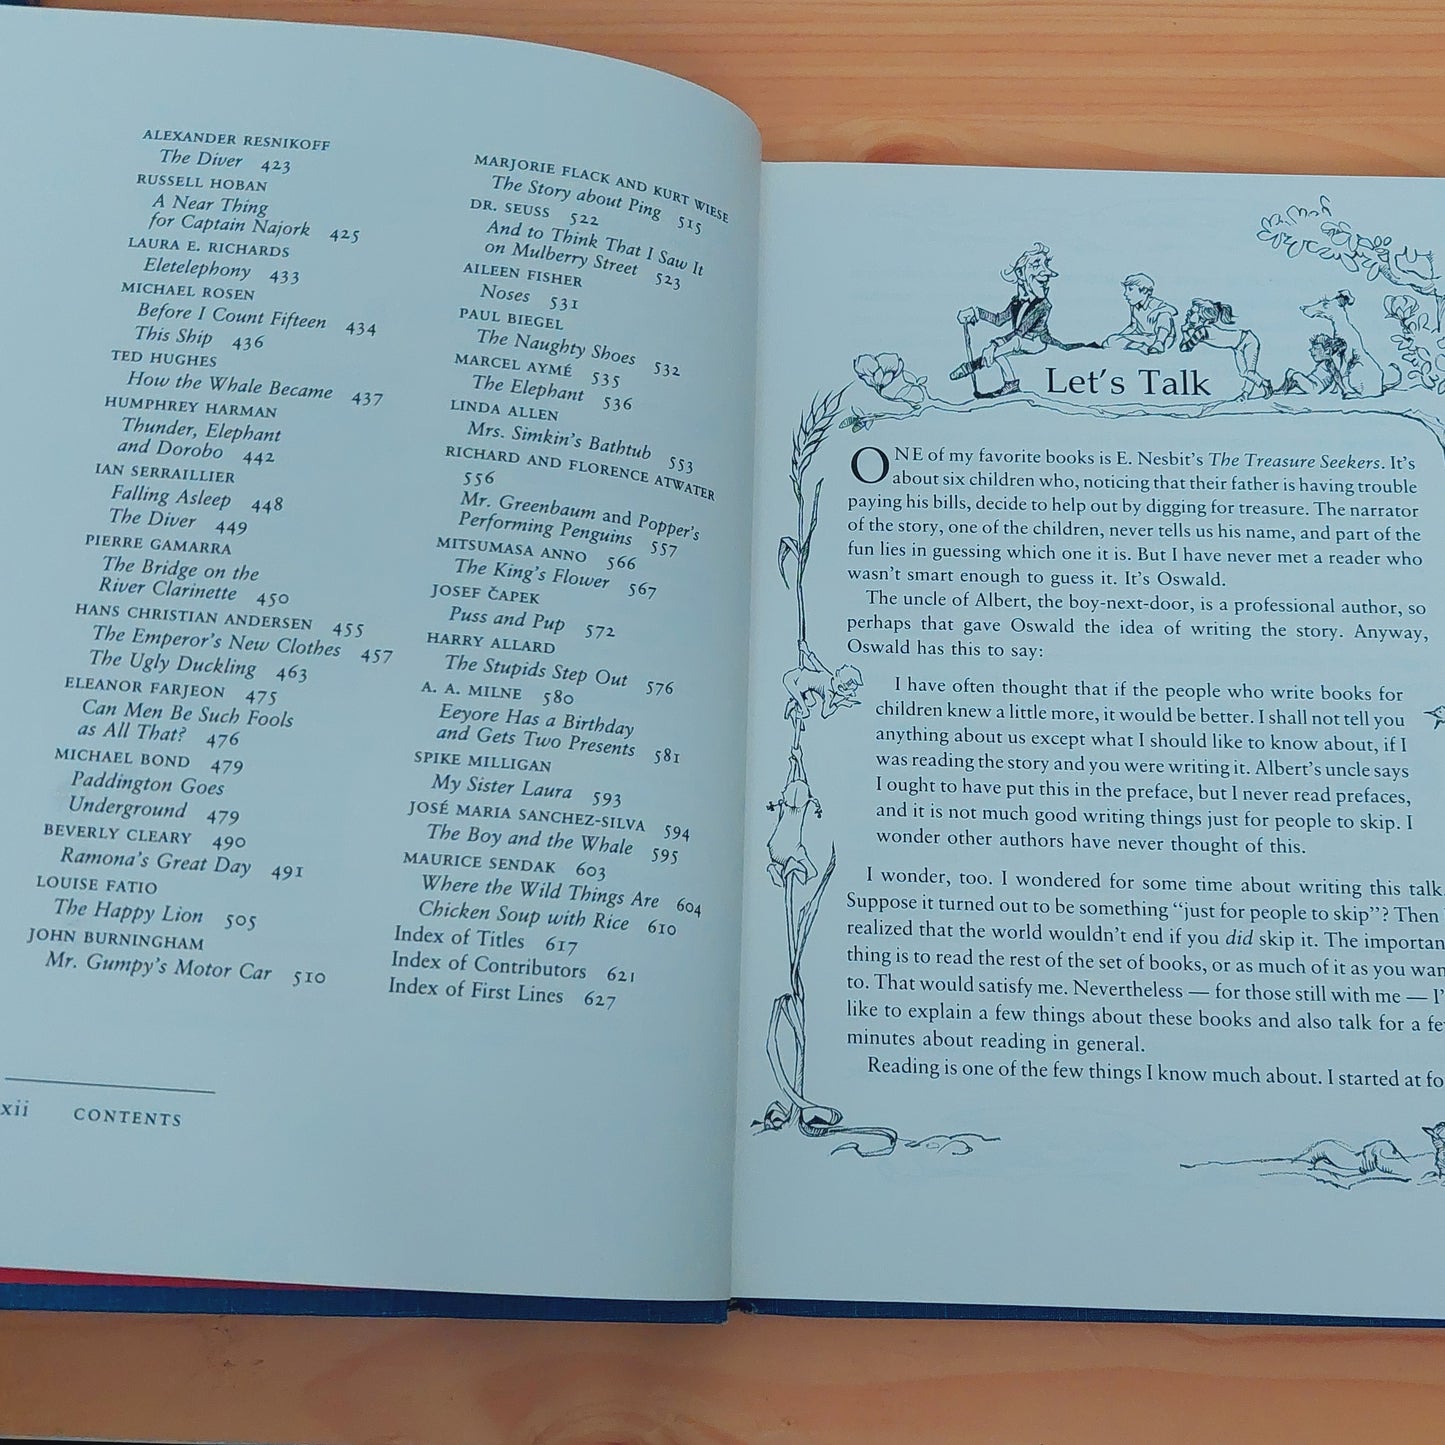 ALEXANDER RESNIKOFF
The Diver 423
RUSSELL HOBAN
A Near Thing
for Captain Najork 425
LAURA E. RICHARDS
Eletelephony 433
MICHAEL ROSEN
Before I Count Fifteen 434
This Ship 436
TED HUGHES
How the Whale Became 437
HUMPHREY HARMAN
Thunder, Elephant
and Dorobo 442
IAN SERRAILLIER
Falling Asleep 448
The Diver 449
PIERRE GAMARRA
The Bridge on the
River Clarinette 450
HANS CHRISTIAN ANDERSEN 455
The Emperor's New Clothes 457
The Ugly Duckling 463
ELEANOR FARJEON 475
Can Men Be Such Fools
as All That? 476
MICHAEL BOND 479
Paddington Goes
Underground 479
BEVERLY CLEARY 490
Ramona's Great Day 491
LOUISE FATIO
The Happy Lion 505
JOHN BURNINGHAM
Mr. Gumpy's Motor Car 510
MARJORIE FLACK AND KURT WIESE
The Story about Ping 515
DR. SEUSS 522
And to Think That I Saw It
on Mulberry Street 523
AILEEN FISHER
Noses 531
PAUL BIEGEL
The Naughty Shoes 532
MARCEL AYMÉ 535
The Elephant 536
LINDA ALLEN
Mrs. Simkin's Bathtub 553
RICHARD AND FLORENCE ATWATER
556
Mr. Greenbaum and Popper's
Performing Penguins 557
MITSUMASA ANNO 566
The King's Flower 567
JOSEF ČAPEK
Puss and Pup 572
HARRY ALLARD
The Stupids Step Out 576
A. A. MILNE 580
Eeyore Has a Birthday
and Gets Two Presents 581
SPIKE MILLIGAN
My Sister Laura 593
JOSÉ MARIA SANCHEZ-SILVA 594
The Boy and the Whale 595
MAURICE SENDAK 603
Where the Wild Things Are 604
Chicken Soup with Rice 610
Index of Titles 617
Index of Contributors 621
Index of First Lines 627
xii CONTENTS
Let's Talk
ONE of my favorite books is E. Nesbit's The Treasure Seekers. It's
about six children who, noticing that their father is having trouble
paying his bills, decide to help out by digging for treasure. The narrator
of the story, one of the children, never tells us his name, and part of the
fun lies in guessing which one it is. But I have never met a reader who
wasn't smart enough to guess it. It's Oswald.
The uncle of Albert, the boy-next-door, is a professional author, so
perhaps that gave Oswald the idea of writing the story. Anyway,
Oswald has this to say:
I have often thought that if the people who write books for
children knew a little more, it would be better. I shall not tell you
anything about us except what I should like to know about, if I
was reading the story and you were writing it. Albert's uncle says
I ought to have put this in the preface, but I never read prefaces,
and it is not much good writing things just for people to skip. I
wonder other authors have never thought of this.
I wonder, too. I wondered for some time about writing this talk.
Suppose it turned out to be something "just for people to skip"? Then
realized that the world wouldn't end if you did skip it. The importan
thing is to read the rest of the set of books, or as much of it as you wan
to. That would satisfy me. Nevertheless — for those still with me — I'
like to explain a few things about these books and also talk for a fe
minutes about reading in general.
Reading is one of the few things I know much about. I started at fo